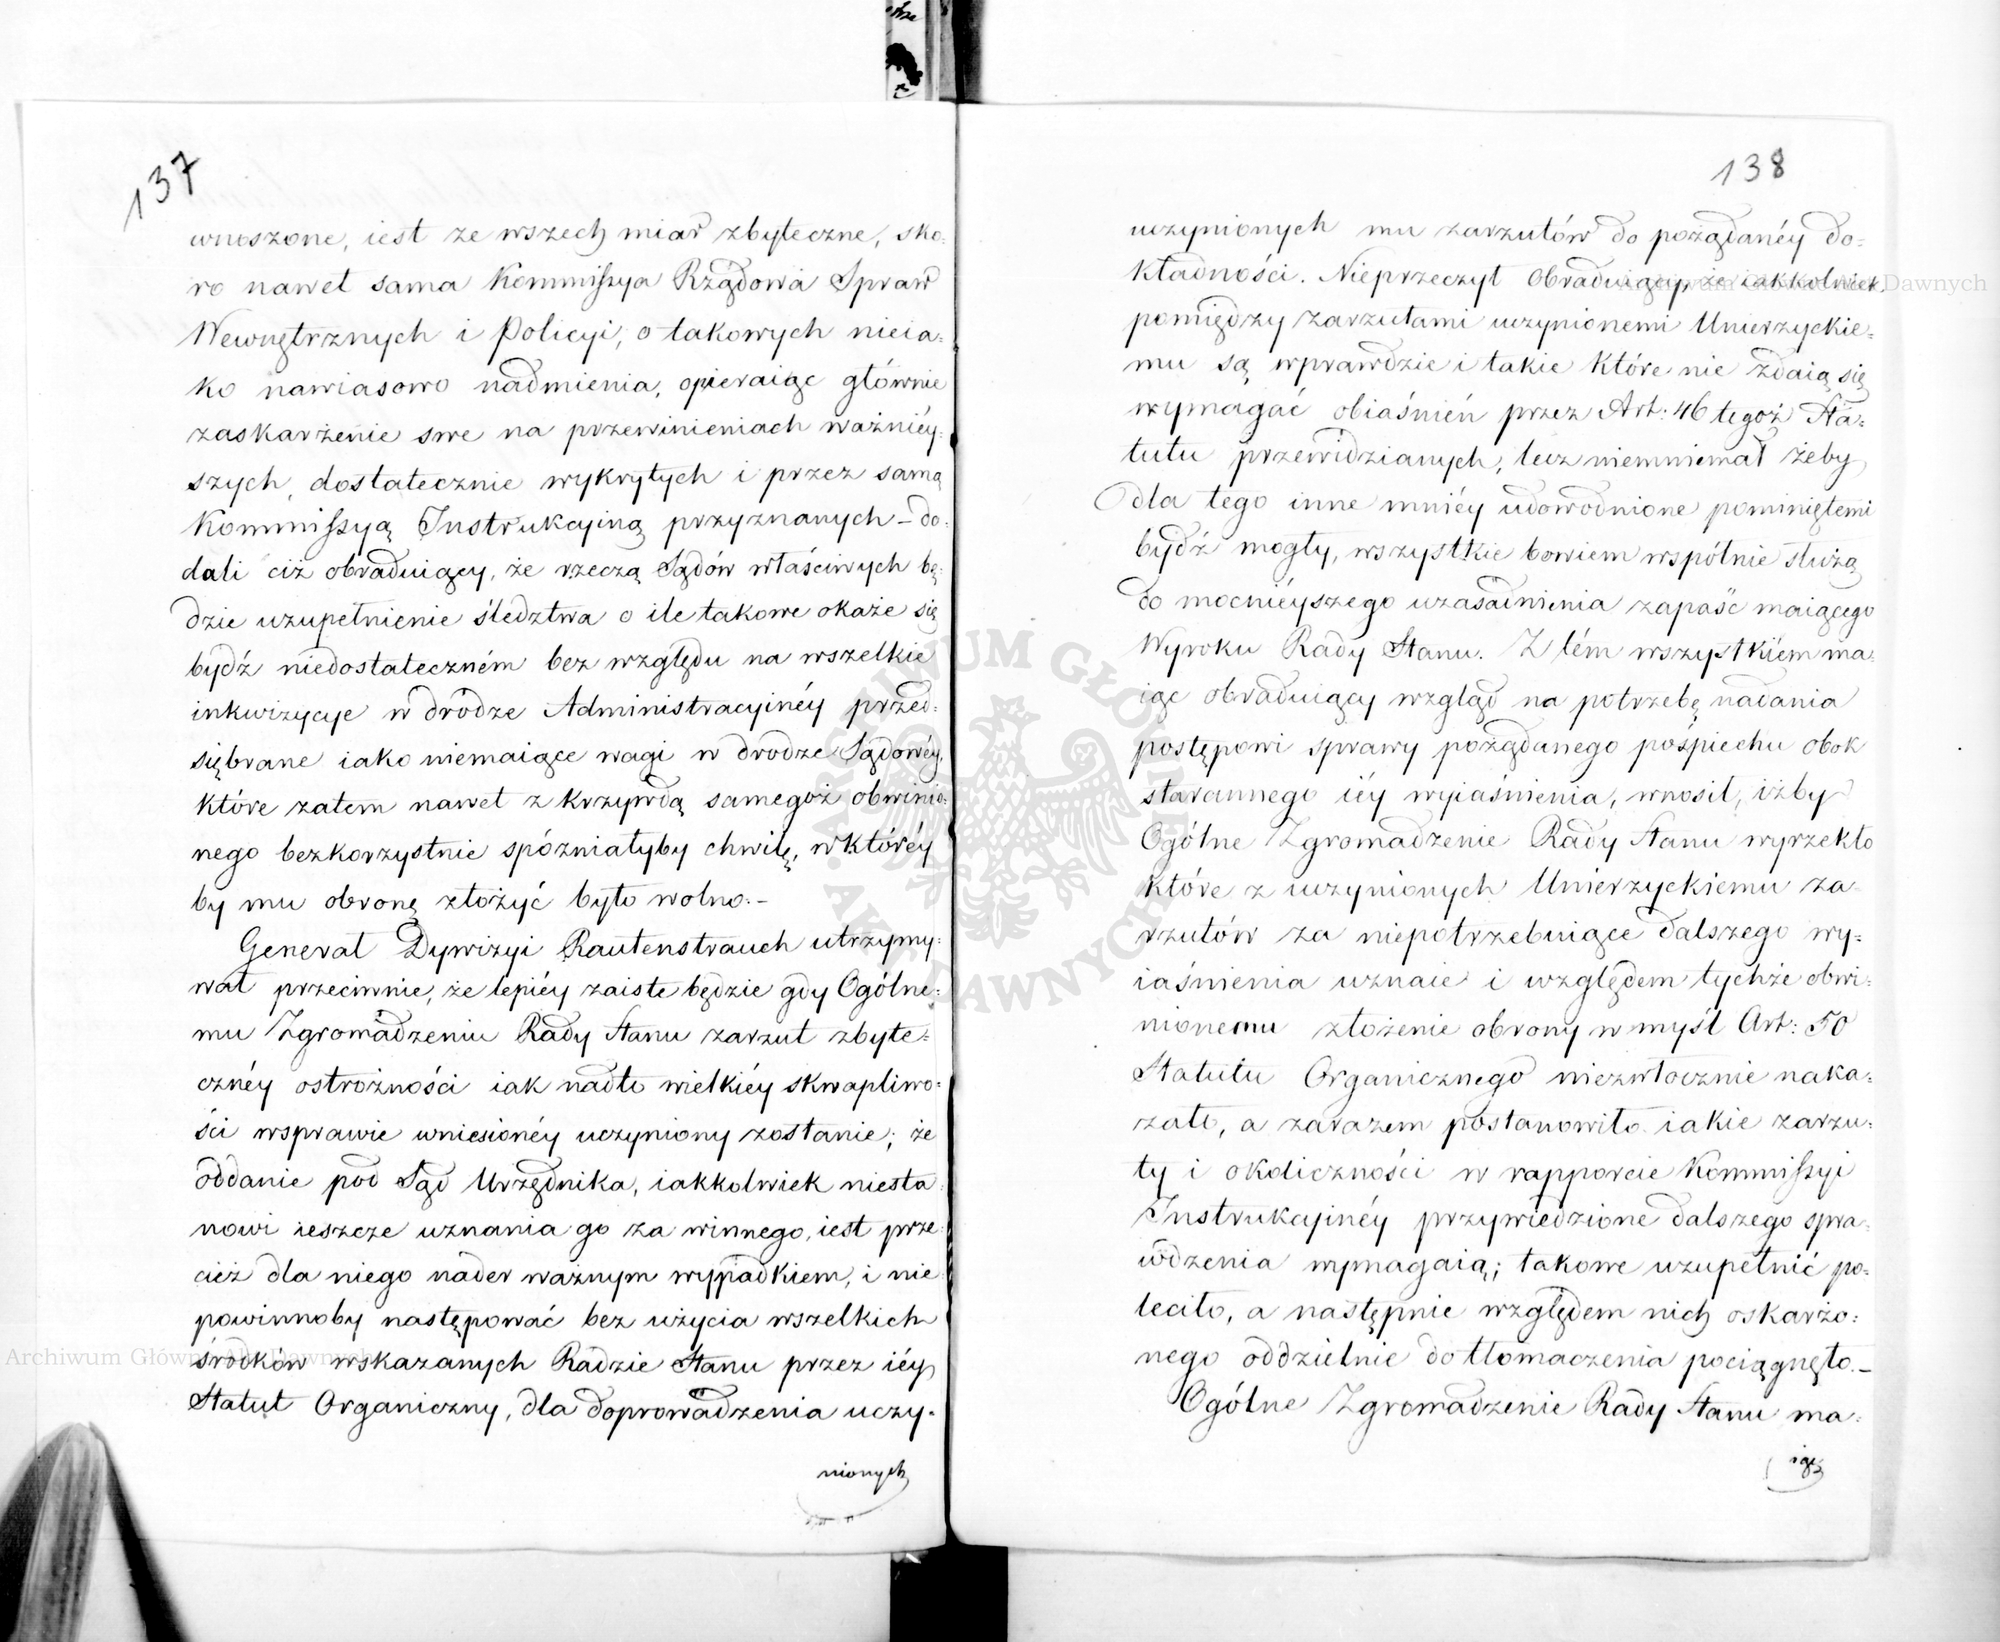 137
wnoszone, iest ze wszech miar zbyteczne, sko=
ro nawet sama Kommissya Rządowa Spraw
Wewnętrznych i Policyi, o takowych nieia=
ko nawiasowo nadmienia, opieraiąc głównie
zaskarżenie swe na przewinieniach ważniéy=
szych, dostatecznie wykrytych i przez samą
Kommissyą Instrukcyiną przyznanych – do=
dali ciż obraduiący, że rzeczą Sądów właściwych bę=
dzie uzupełnienie śledztwa o ile takowe okaże się
bydź niedostateczném bez względu na wszelkie
inkwizycye w drodze Administracyinéy przed=
sięwbrane iako niemaiące wagi w drodze Sądowéy,
które zatem nawet z krzywdą samegoż obwinio=
nego bezkorzystnie spóźniałyby chwilę, w któréy
by mu obronę złożyć było wolno.–
Generał Dywizyi Rautenstrauch utrzymy=
wał przeciwnie, że lepiéy zaiste będzie gdy Ogólne=
mu Zgromadzeniu Rady Stanu zarzut zbyte=
cznéy ostrożności iak nadto wielkiéy skwapliwo=
ści wsprawie wniesionéy uczyniony zostanie; że
oddanie pod Sąd Urzędnika, iakkolwiek niesta=
nowi ieszcze uznania go za winnego, iest prze=
cież dla niego nader ważnym wypadkiem, i nie
powinnoby następować bez użycia wszelkich
środków wskazanych Radzie Stanu przez iéy
Statut Organiczny, dla doprowadzenia uczy=
nionych
138
uczynionych mu zarzutów do pożądanéy do=
kładności. Nieprzeczył Obraduiący, że iakkolwiek
pomiędzy zarzutami uczynionemi Unierzyckie=
mu są wprawdzie i takie które nie zdaią się
wymagać obiaśnień przez Art: 46 tegoż Sta=
tutu przewidzianych, lecz niemniemał żeby
dla tego inne mniéy udowodnione pominiętemi
bydź mogły, wszystkie bowiem wspólnie służą
do mocniéyszego uzasadnienia zapaść maiącego
Wyroku Rady Stanu. Z tém wszystkiém ma=
iąc obraduiący wzgląd na potrzebę nadania
postępowi sprawy pożądanego pośpiechu obok
starannego iéy wyiaśnienia, wnosił, iżby
Ogólne Zgromadzenie Rady Stanu wyrzekło
które z uczynionych Unierzyckiemu za=
rzutów za niepotrzebuiące dalszego wy=
iaśnienia uznaie i względem tychże obwi=
nionemu złożenie obrony w myśl Art: 50
Statutu Organicznego niezwłocznie naka=
zało, a zarazem postanowiło iakie zarzu=
ty i okoliczności w rapporcie Kommissyi
Instrukcyinéy przywiedzione dalszego spra=
wdzenia wymagaią; takowe uzupełnić po=
leciło, a następnie względem nich oskarżo=
nego oddzielnie do tłomaczenia pociągnęło.–
Ogólne Zgromadzenie Rady Stanu ma=
iąc
Archiwum Główne Akt Dawnych
ARCHIWUM GŁÓWNE AKT DAWNYCH